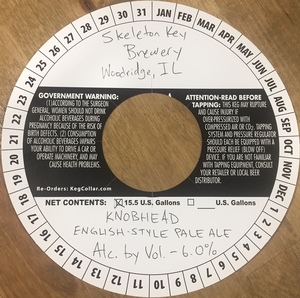 Skeleton Key
Brewery
Woodridge, IL
GOVERNMENT WARNING:
(1)ACCORDING TO THE SURGEON
GENERAL, WOMEN SHOULD NOT DRINK
ALCOHOLIC BEVERAGES DURING
PREGNANCY BECAUSE OF THE RISK OF
BIRTH DEFECTS. (2) CONSUMPTION
OF ALCOHOLIC BEVERAGES IMPAIRS
YOUR ABILITY TO DRIVE A CAR OR
OPERATE MACHINERY, AND MAY
CAUSE HEALTH PROBLEMS.
Re-Orders: KegCollar.com
ATTENTION-READ BEFORE
TAPPING: THIS KEG MAY RUPTURE
AND CAUSE INJURY IF
OVER-PRESSURIZED WITH
COMPRESSED AIR OR CO2; TAPPING
SYSTEM AND PRESSURE REGULATOR
SHOULD EACH BE EQUIPPED WITH A
PRESSURE RELIEF (BLOW OFF)
DEVICE. IF YOU ARE NOT FAMILIAR
WITH TAPPING EQUIPMENT, CONTACT
YOUR RETAILER OR LOCAL BEER
DISTRIBUTOR.
NET CONTENTS: 15.5 U.S. Gallons U.S. Gallons
KNOBHEAD
ENGLISH-STYLE PALE ALE
Alc. by Vol. - 6.0%
JAN
FEB
MAR
APR
MAY
JUN
JUL
AUG
SEP
OCT
NOV
DEC
1
2
3
4
5
6
7
8
9
10
11
12
13
14
15
16
17
18
19
20
21
22
23
24
25
26
27
28
29
30
31